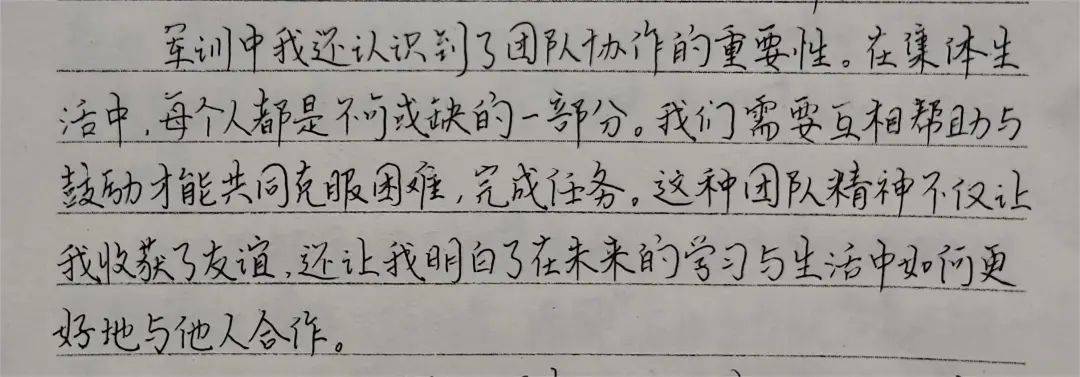 军训中我还认识到了团队协作的重要性。在集体生
活中,每个人都是不可或缺的一部分。我们需要互相帮助与
鼓励才能共同克服困难,完成任务。这种团队精神不仅让
我收获了友谊,还让我明白了在未来的学习与生活中如何更
好地与他人合作。